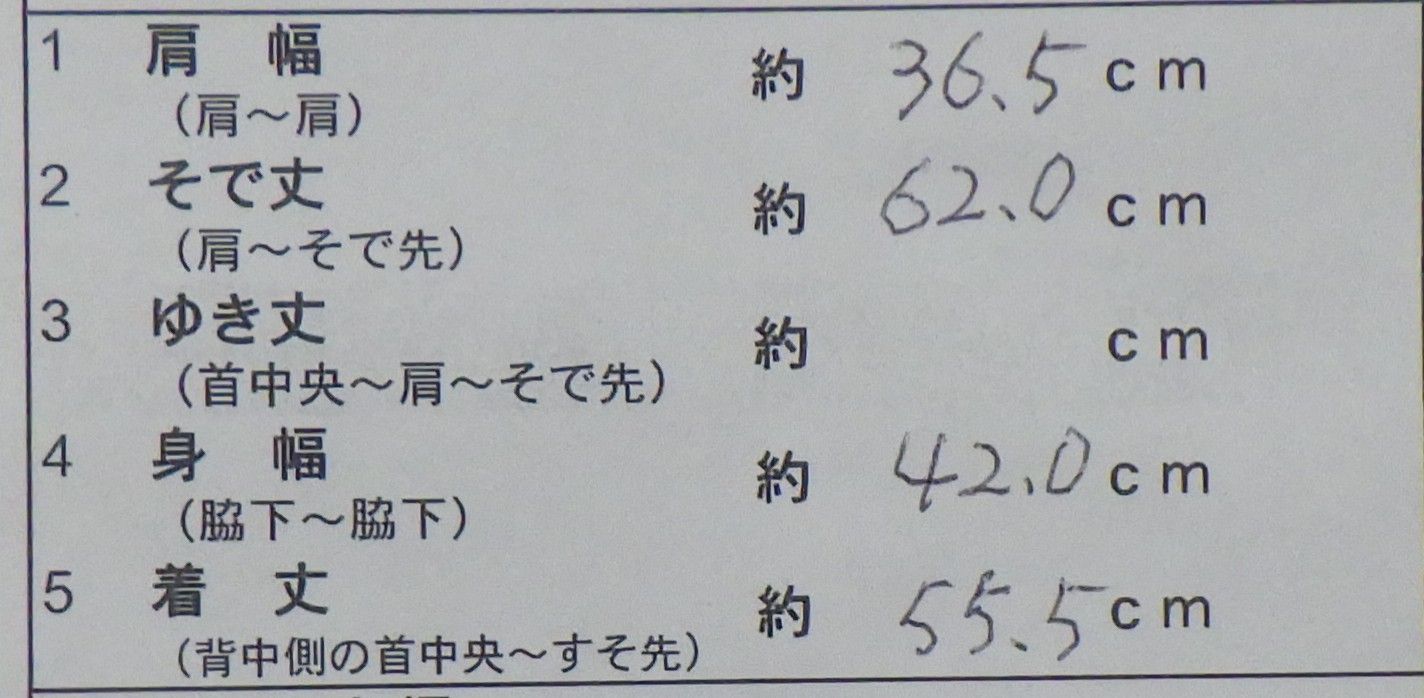 1 肩 幅 約 36.5 cm
(肩～肩)
2 そで丈 約 62.0 cm
(肩～そで先)
3 ゆき丈 約 cm
(首中央～肩～そで先)
4 身 幅 約 42.0 cm
(脇下～脇下)
5 着 丈 約 55.5 cm
(背中側の首中央～すそ先)